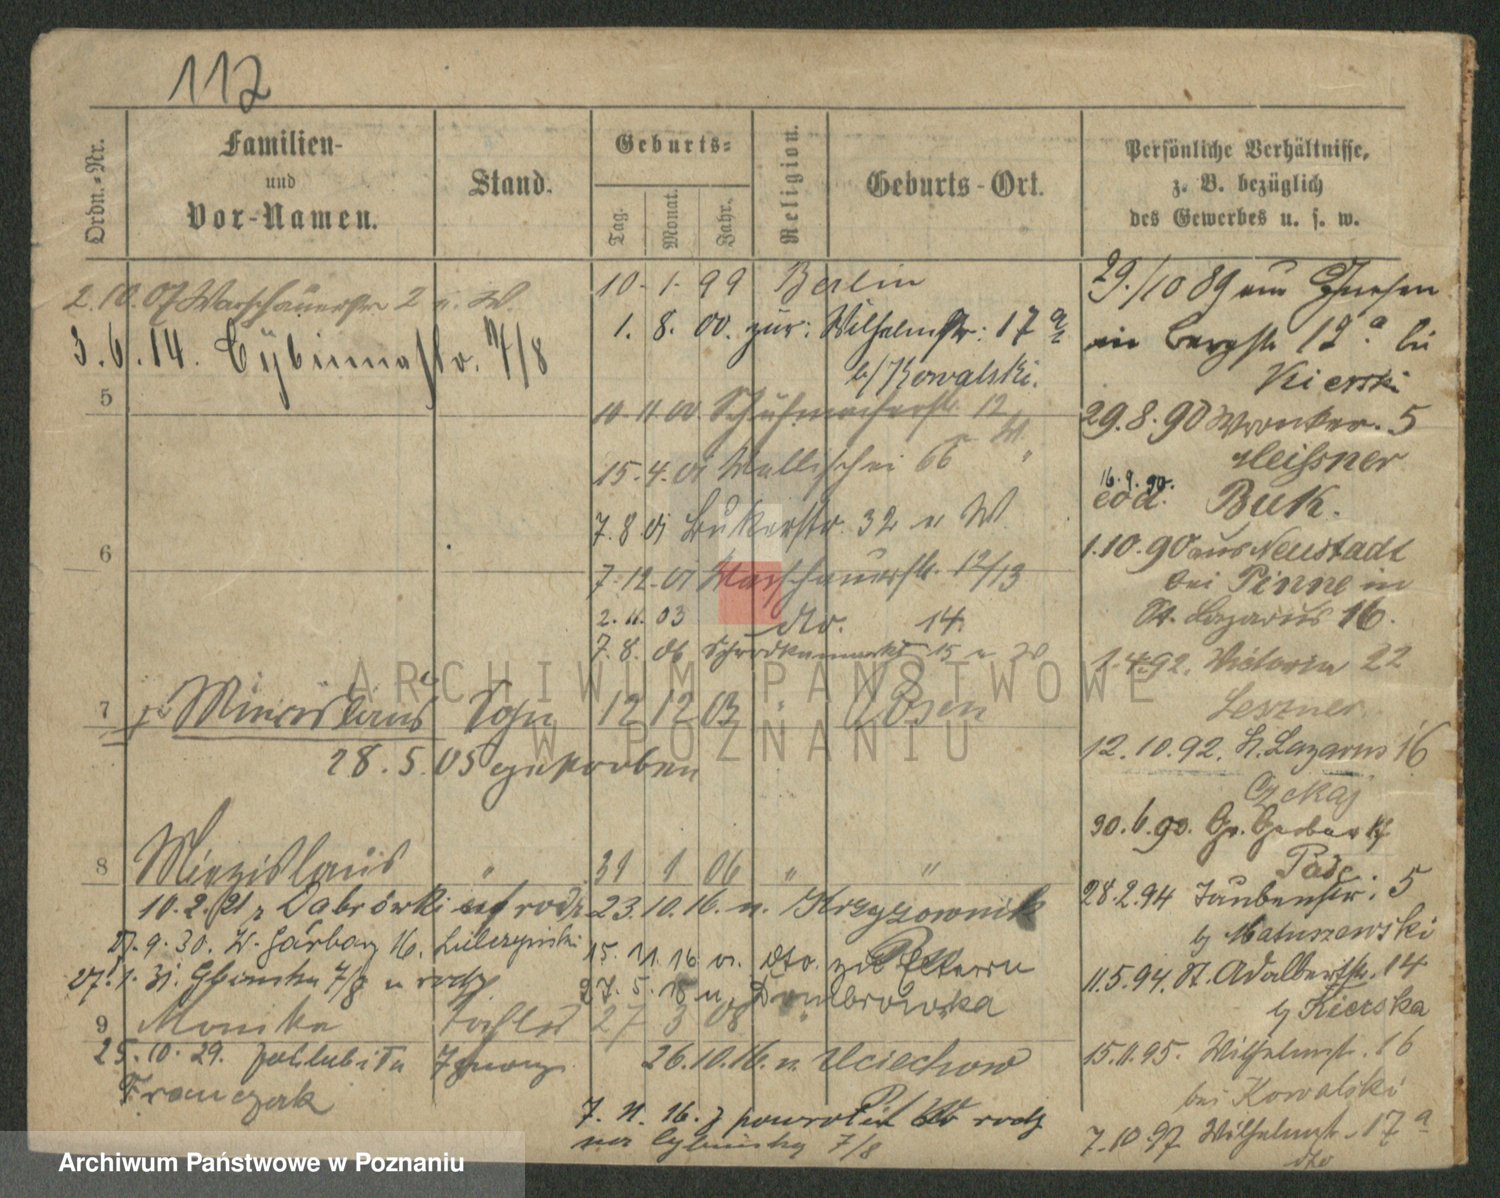 112
Ordn.-Nr.
Familien-
und
Vor-Namen.
Stand.
Geburts-
Tag.
Monat.
Jahr.
Religion.
Geburts-Ort.
Persönliche Verhältnisse,
z. B. bezüglich
des Gewerbes u. s. w.
2.10.07 Warschauerstr 2 u. W.
3.6.14. Cybinnastr. 7/8
5
6
7 Miecislaus Sohn 12 12 03 " Posen
28.5.05 gestorben
8 Miezislaus " 31 1 06 " "
10.2.21 z Dabrówki rodz.
9.30. W. Garbary 16.
27.1.31. 7/8 u rodz.
9 Monika Tochter 27 3 08 "
25.10.29. poślubiła
Franczak
10 - 1 - 99 Berlin
1. 8. 00. zur: Wilhelmstr: 17 a
b/ Kowalski.
11 11 00 Schuhmacherstr. 12
15.4.01 Wallischei 66 W.
7.8.01 Bukerstr. 32 u W.
7-12-01 Warschauerstr. 12/13
2.11.03 dto. 14.
7.8.06 Schrodkamarkt 15 u W
23.10.16. n. Krzyzownik
15.11.16 v. dto. zu Eltern
27.5.18 n. Dombrowka
26.10.16. n. Uciechow
7.11.16. z powrotem do rodz
na Cybinską 7/8
29./10 89 aus Gnesen
in Bergstr 12.a bei
Kierski
29.8.90 Wronker. 5
Meissner
16.9.90.
eod. Buk.
1.10.90 aus Neustadt
bei Pinne in
St. Lazarus 16.
1.4.92. Victoria 22
Leszner
12.10.92. St. Lazarus 16
Czekaj
30.6.93. Gr. Gerber
28.2.94 Taubenstr. 5
b/ Matuszewski
11.5.94. St. Adalbertstr. 14
b/ Kierska
15.11.95. Wilhelmstr. 16
bei Kowalski
7.10 97 Wilhelmstr. 17 a
dto
ARCHIWUM PAŃSTWOWE
W POZNANIU
Archiwum Państwowe w Poznaniu